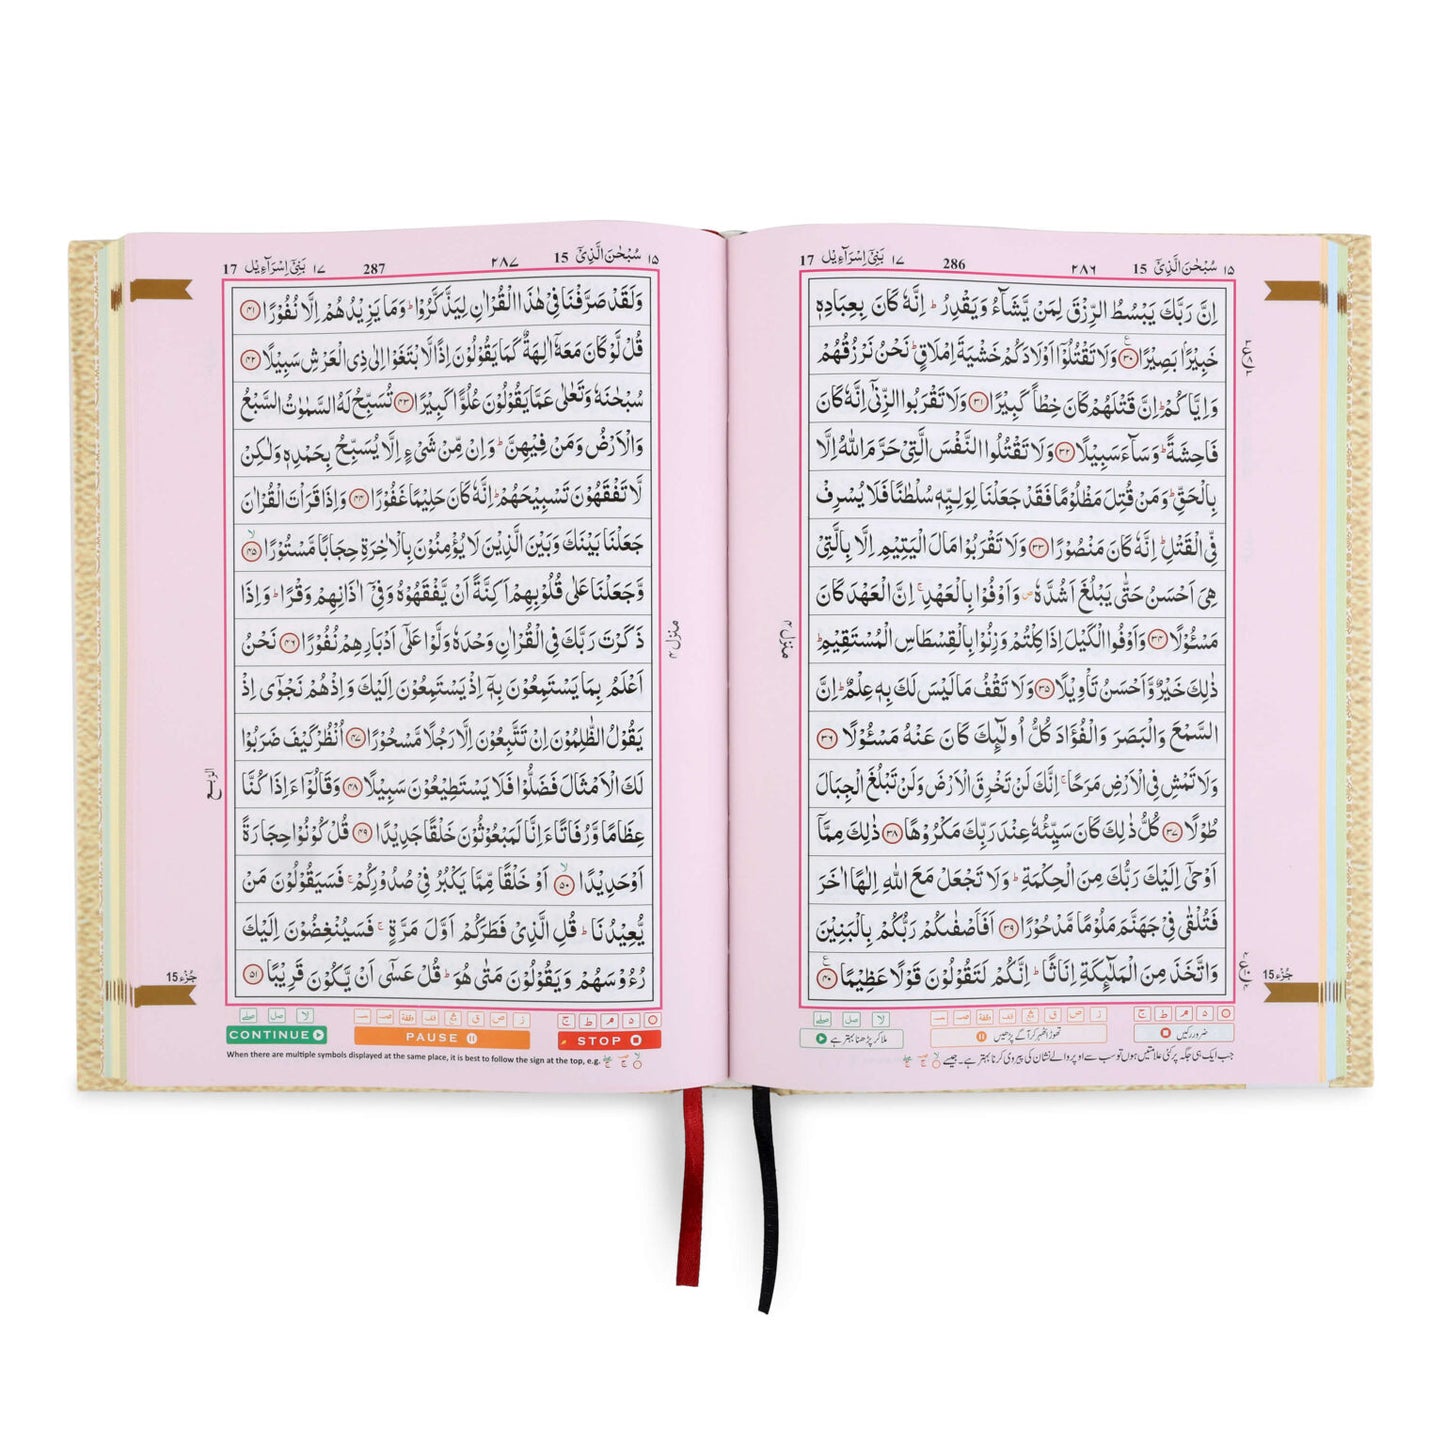 ۱۵ سُبْحٰنَ الَّذِیْۤ 15 ۲۸۶ 286 ۱۷ بَنِیْۤ اِسْرَآءِیْل 17
اِنَّ رَبَّكَ یَبْسُطُ الرِّزْقَ لِمَنْ یَّشَآءُ وَیَقْدِرُ ؕ اِنَّهٗ كَانَ بِعِبَادِهٖ
خَبِیْرًۢا بَصِیْرًا ۳۰ وَلَا تَقْتُلُوْۤا اَوْلَادَكُمْ خَشْیَةَ اِمْلَاقٍ ؕ نَحْنُ نَرْزُقُهُمْ
وَاِیَّاكُمْ ؕ اِنَّ قَتْلَهُمْ كَانَ خِطْاً كَبِیْرًا ۳۱ وَلَا تَقْرَبُوا الزِّنٰۤی اِنَّهٗ كَانَ
فَاحِشَةً ؕ وَسَآءَ سَبِیْلًا ۳۲ وَلَا تَقْتُلُوا النَّفْسَ الَّتِیْ حَرَّمَ اللّٰهُ اِلَّا
بِالْحَقِّ ؕ وَمَنْ قُتِلَ مَظْلُوْمًا فَقَدْ جَعَلْنَا لِوَلِیِّهٖ سُلْطٰنًا فَلَا یُسْرِفْ
فِّی الْقَتْلِ ؕ اِنَّهٗ كَانَ مَنْصُوْرًا ۳۳ وَلَا تَقْرَبُوْا مَالَ الْیَتِیْمِ اِلَّا بِالَّتِیْ
هِیَ اَحْسَنُ حَتّٰی یَبْلُغَ اَشُدَّهٗ ۪ وَاَوْفُوْا بِالْعَهْدِ ۚ اِنَّ الْعَهْدَ كَانَ
مَسْـُٔوْلًا ۳۴ وَاَوْفُوا الْكَیْلَ اِذَا كِلْتُمْ وَزِنُوْا بِالْقِسْطَاسِ الْمُسْتَقِیْمِ ؕ
ذٰلِكَ خَیْرٌ وَّاَحْسَنُ تَاْوِیْلًا ۳۵ وَلَا تَقْفُ مَا لَیْسَ لَكَ بِهٖ عِلْمٌ ؕ اِنَّ
السَّمْعَ وَالْبَصَرَ وَالْفُؤَادَ كُلُّ اُولٰٓئِكَ كَانَ عَنْهُ مَسْـُٔوْلًا ۳۶
وَلَا تَمْشِ فِی الْاَرْضِ مَرَحًا ۚ اِنَّكَ لَنْ تَخْرِقَ الْاَرْضَ وَلَنْ تَبْلُغَ الْجِبَالَ
طُوْلًا ۳۷ كُلُّ ذٰلِكَ كَانَ سَیِّئُهٗ عِنْدَ رَبِّكَ مَكْرُوْهًا ۳۸ ذٰلِكَ مِمَّاۤ
اَوْحٰۤی اِلَیْكَ رَبُّكَ مِنَ الْحِكْمَةِ ؕ وَلَا تَجْعَلْ مَعَ اللّٰهِ اِلٰهًا اٰخَرَ
فَتُلْقٰی فِیْ جَهَنَّمَ مَلُوْمًا مَّدْحُوْرًا ۳۹ اَفَاَصْفٰىكُمْ رَبُّكُمْ بِالْبَنِیْنَ
وَاتَّخَذَ مِنَ الْمَلٰٓئِكَةِ اِنَاثًا ؕ اِنَّكُمْ لَتَقُوْلُوْنَ قَوْلًا عَظِیْمًا ۴۰
منزل ۴
جُزْء 15
ضرور رکیں
تھوڑا ٹھہر کر آگے پڑھیں
ملا کر پڑھنا بہتر ہے
جب ایک ہی جگہ پر کئی علامتیں ہوں تو سب سے اوپر والے نشان کی پیروی کرنا بہتر ہے۔ جیسے
۱۵ سُبْحٰنَ الَّذِیْۤ 15 ۲۸۷ 287 ۱۷ بَنِیْۤ اِسْرَآءِیْل 17
وَلَقَدْ صَرَّفْنَا فِیْ هٰذَا الْقُرْاٰنِ لِیَذَّكَّرُوْا ؕ وَمَا یَزِیْدُهُمْ اِلَّا نُفُوْرًا ۴۱
قُلْ لَّوْ كَانَ مَعَهٗۤ اٰلِهَةٌ كَمَا یَقُوْلُوْنَ اِذًا لَّابْتَغَوْا اِلٰی ذِی الْعَرْشِ سَبِیْلًا ۴۲
سُبْحٰنَهٗ وَتَعٰلٰی عَمَّا یَقُوْلُوْنَ عُلُوًّا كَبِیْرًا ۴۳ تُسَبِّحُ لَهُ السَّمٰوٰتُ السَّبْعُ
وَالْاَرْضُ وَمَنْ فِیْهِنَّ ؕ وَاِنْ مِّنْ شَیْءٍ اِلَّا یُسَبِّحُ بِحَمْدِهٖ وَلٰكِنْ
لَّا تَفْقَهُوْنَ تَسْبِیْحَهُمْ ؕ اِنَّهٗ كَانَ حَلِیْمًا غَفُوْرًا ۴۴ وَاِذَا قَرَاْتَ الْقُرْاٰنَ
جَعَلْنَا بَیْنَكَ وَبَیْنَ الَّذِیْنَ لَا یُؤْمِنُوْنَ بِالْاٰخِرَةِ حِجَابًا مَّسْتُوْرًا ۴۵
وَّجَعَلْنَا عَلٰی قُلُوْبِهِمْ اَكِنَّةً اَنْ یَّفْقَهُوْهُ وَفِیْۤ اٰذَانِهِمْ وَقْرًا ؕ وَاِذَا
ذَكَرْتَ رَبَّكَ فِی الْقُرْاٰنِ وَحْدَهٗ وَلَّوْا عَلٰۤی اَدْبَارِهِمْ نُفُوْرًا ۴۶ نَحْنُ
اَعْلَمُ بِمَا یَسْتَمِعُوْنَ بِهٖۤ اِذْ یَسْتَمِعُوْنَ اِلَیْكَ وَاِذْ هُمْ نَجْوٰۤی اِذْ
یَقُوْلُ الظّٰلِمُوْنَ اِنْ تَتَّبِعُوْنَ اِلَّا رَجُلًا مَّسْحُوْرًا ۴۷ اُنْظُرْ كَیْفَ ضَرَبُوْا
لَكَ الْاَمْثَالَ فَضَلُّوْا فَلَا یَسْتَطِیْعُوْنَ سَبِیْلًا ۴۸ وَقَالُوْۤا ءَاِذَا كُنَّا
عِظَامًا وَّرُفَاتًا ءَاِنَّا لَمَبْعُوْثُوْنَ خَلْقًا جَدِیْدًا ۴۹ قُلْ كُوْنُوْا حِجَارَةً
اَوْ حَدِیْدًا ۵۰ اَوْ خَلْقًا مِّمَّا یَكْبُرُ فِیْ صُدُوْرِكُمْ ۚ فَسَیَقُوْلُوْنَ مَنْ
یُّعِیْدُنَا ؕ قُلِ الَّذِیْ فَطَرَكُمْ اَوَّلَ مَرَّةٍ ۚ فَسَیُنْغِضُوْنَ اِلَیْكَ
رُءُوْسَهُمْ وَیَقُوْلُوْنَ مَتٰی هُوَ ؕ قُلْ عَسٰۤی اَنْ یَّكُوْنَ قَرِیْبًا ۵۱
منزل ۴
الربع
جُزْء 15
CONTINUE PAUSE STOP
When there are multiple symbols displayed at the same place, it is best to follow the sign at the top, e.g.